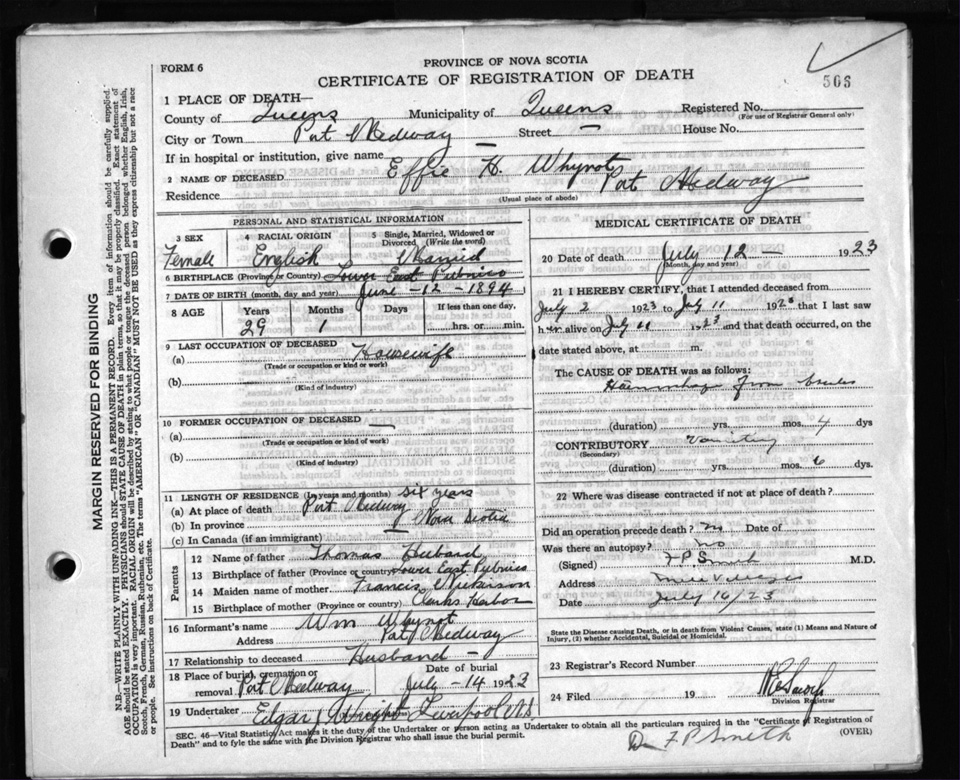 FORM 6
PROVINCE OF NOVA SCOTIA
CERTIFICATE OF REGISTRATION OF DEATH
506
1 PLACE OF DEATH—
County of Queens Municipality of Queens Registered No.
(For use of Registrar General only)
City or Town Port Medway Street — House No.
If in hospital or institution, give name —
2 NAME OF DECEASED Effie H. Whynot
Residence Port Medway
(Usual place of abode)
PERSONAL AND STATISTICAL INFORMATION
3 SEX Female
4 RACIAL ORIGIN English
5 Single, Married, Widowed or Divorced (Write the word) Married
6 BIRTHPLACE (Province or Country) Lower East Pubnico
7 DATE OF BIRTH (month, day and year) June - 12 - 1894
8 AGE Years 29 Months 1 Days If less than one day, hrs. or min.
9 LAST OCCUPATION OF DECEASED
(a) Housewife
(Trade or occupation or kind or work)
(b)
(Kind of industry)
10 FORMER OCCUPATION OF DECEASED
(a) —
(Trade or occupation or kind of work)
(b)
(Kind of industry)
11 LENGTH OF RESIDENCE (In years and months) six years
(a) At place of death Port Medway
(b) In province Nova Scotia
(c) In Canada (if an immigrant)
Parents
12 Name of father Thomas
13 Birthplace of father (Province or country) Lower East Pubnico
14 Maiden name of mother Francis Nickerson
15 Birthplace of mother (Province or country) Clarks Harbor
16 Informant's name Wm Whynot
Address Port Medway
17 Relationship to deceased Husband
18 Place of burial, cremation or removal Port Medway Date of burial July - 14 1923
19 Undertaker Edgar J Wright Liverpool N.S
MEDICAL CERTIFICATE OF DEATH
20 Date of death July 12 1923
(Month, day and year)
21 I HEREBY CERTIFY, that I attended deceased from
July 2 1923 to July 11 1923 that I last saw
h er alive on July 11 1923 and that death occurred, on the
date stated above, at m.
The CAUSE OF DEATH was as follows:
from
(duration) yrs. mos. 4 dys
CONTRIBUTORY Vomiting
(Secondary)
(duration) yrs. mos. 6 dys.
22 Where was disease contracted if not at place of death?
Did an operation precede death? no Date of
Was there an autopsy? no
(Signed) F.P. Smith M.D.
Address Mill Village
Date July 16/23
State the Disease causing Death, or in death from Violent Causes, state (1) Means and Nature of Injury, (2) whether Accidental, Suicidal or Homicidal.
23 Registrar's Record Number
24 Filed 19
Division Registrar
SEC. 46—Vital Statistics Act makes it the duty of the Undertaker or person acting as Undertaker to obtain all the particulars required in the "Certificate of Registration of
Death" and to fyle the same with the Division Registrar who shall issue the burial permit. (OVER)
Dr F P Smith
MARGIN RESERVED FOR BINDING
N.B.—WRITE PLAINLY WITH UNFADING INK—THIS IS A PERMANENT RECORD. Every item of information should be carefully supplied.
AGE should be stated EXACTLY. PHYSICIANS should STATE CAUSE OF DEATH in plain terms, so that it may be properly classified. Exact statement of
OCCUPATION is very important. RACIAL ORIGIN will be described by stating to what people or tongue the deceased person belonged whether English, Irish,
Scotch, French, German, Russian, Ruthenian, etc. The terms "AMERICAN" or "CANADIAN" MUST NOT BE USED as they express citizenship but not a race
or people. See instructions on back of Certificate.